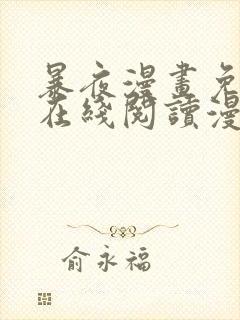 暴夜漫畫免
在綫閱讀漫
俞永福